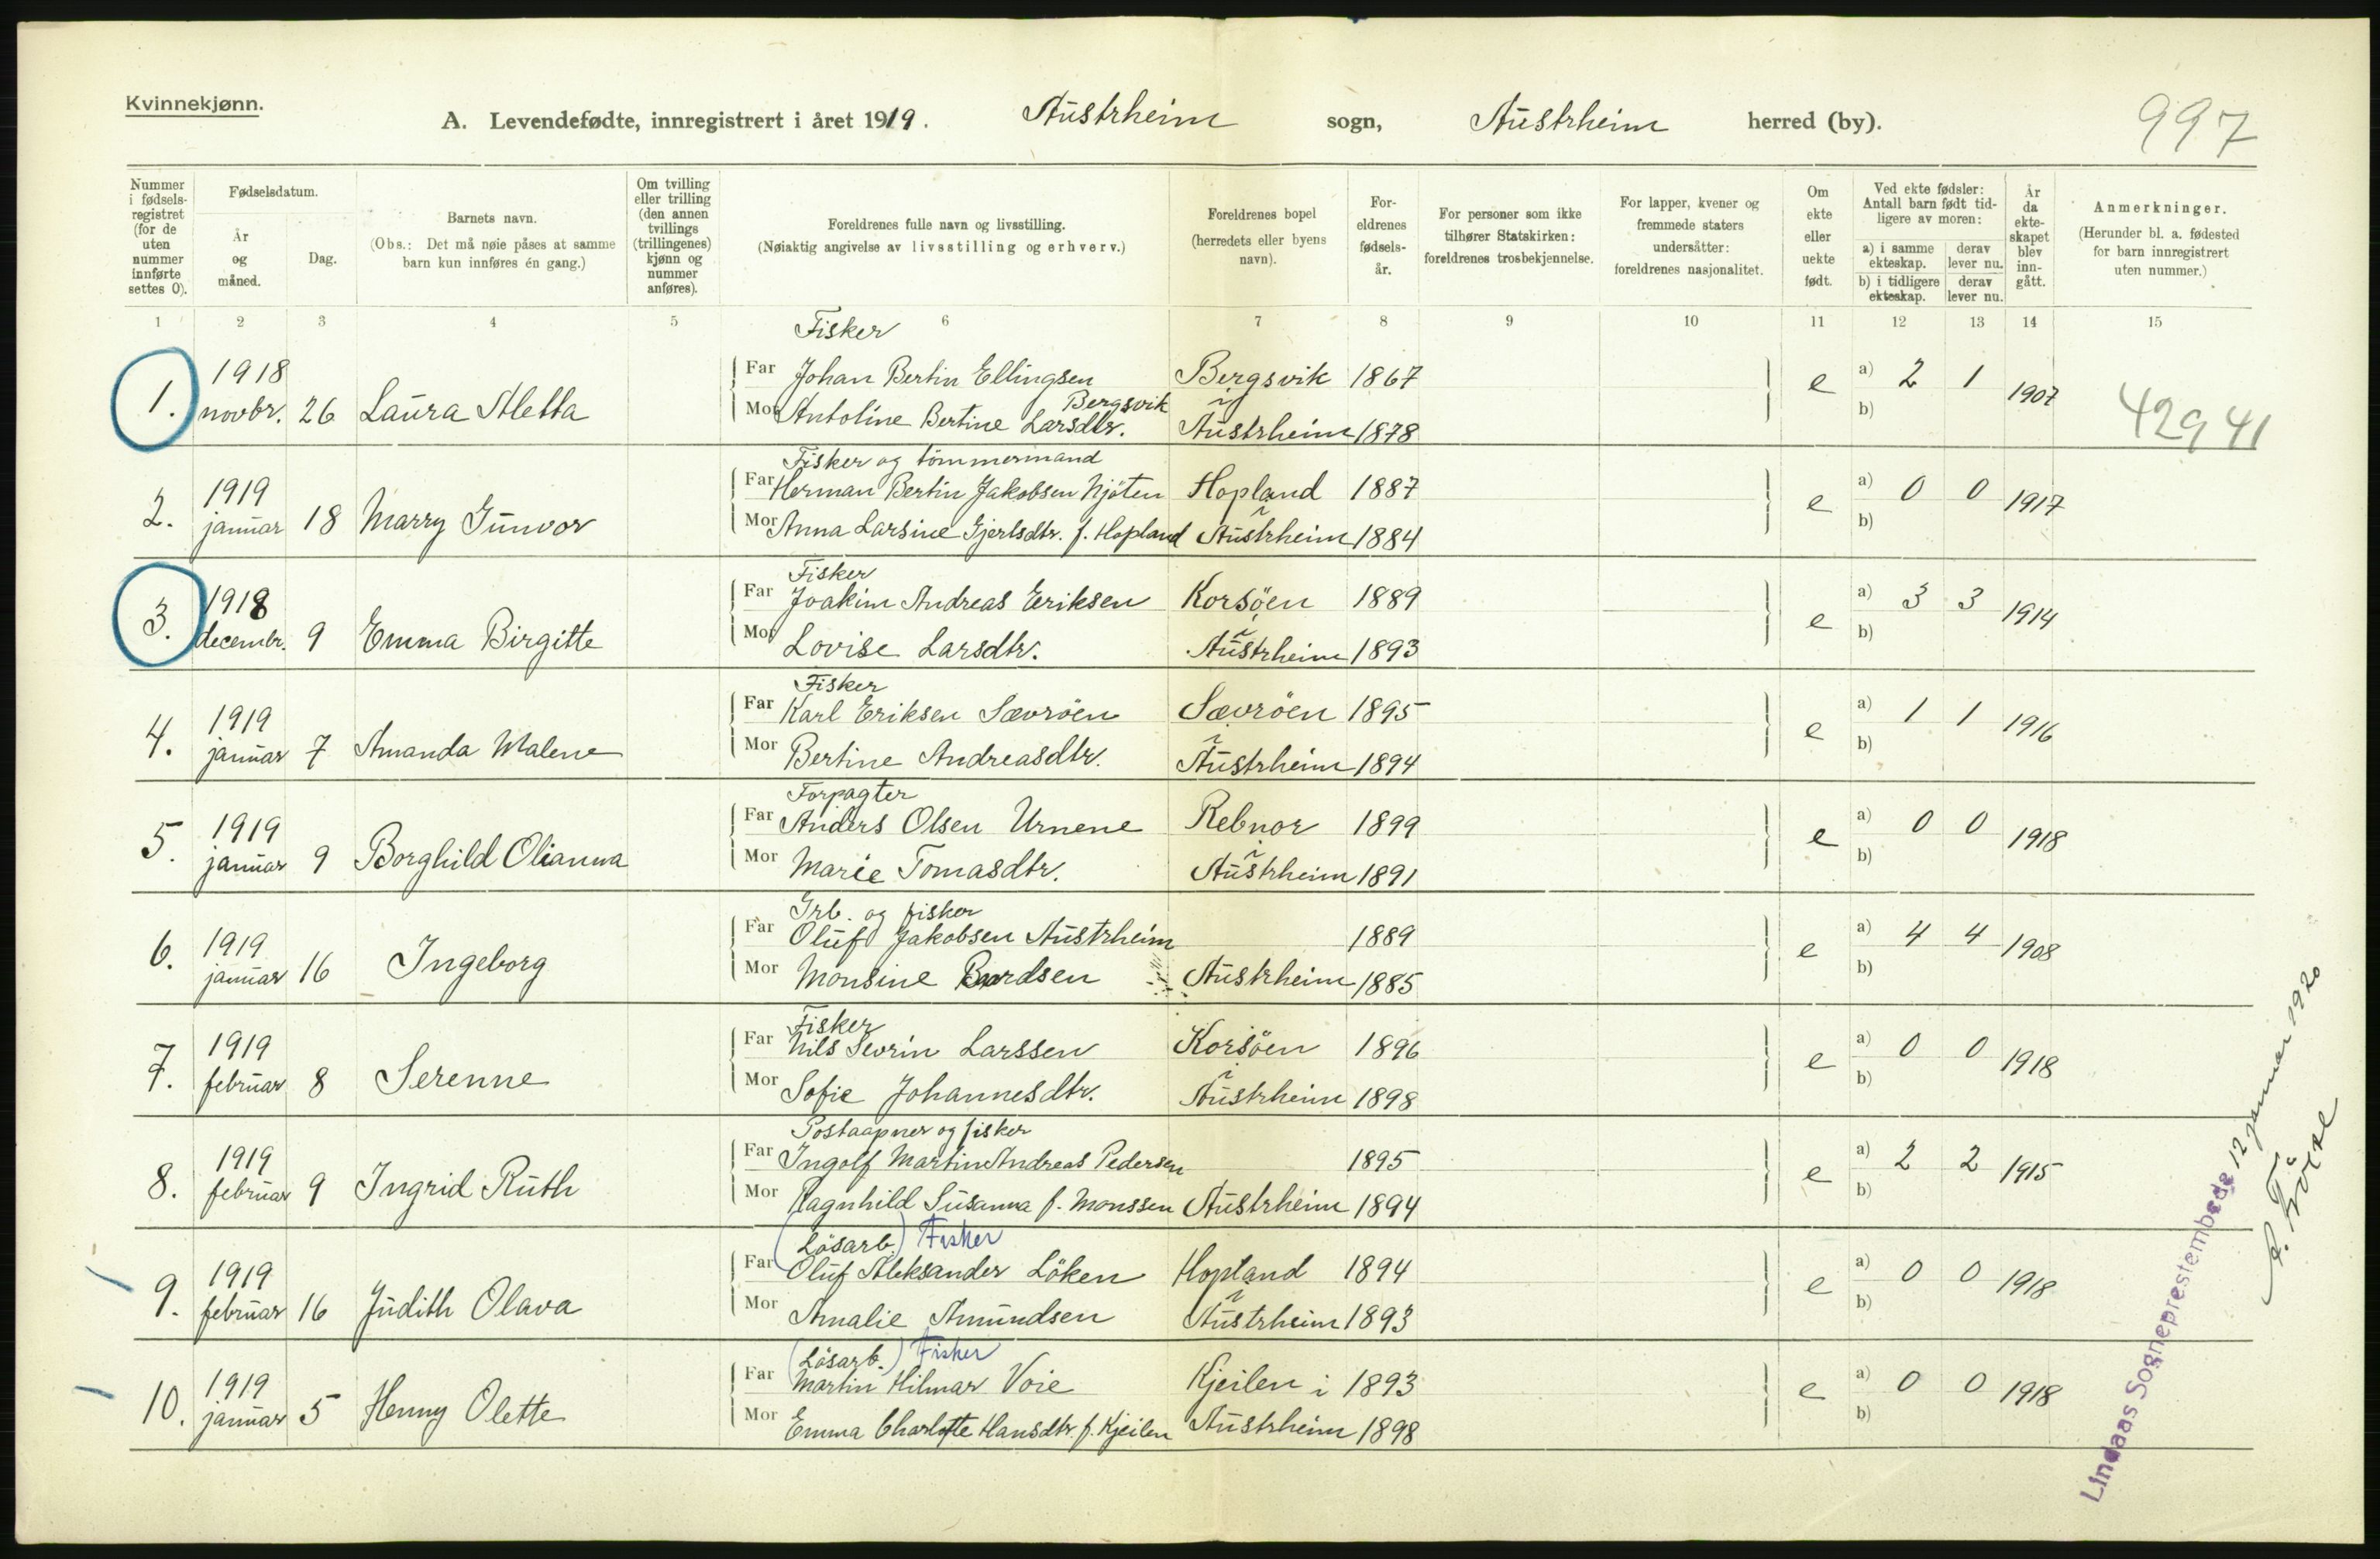 Kvinnekjønn.
A. Levendefødte, innregistrert i året 1919. Austrheim sogn, Austrheim herred (by). 997
Nummer i fødselsregistret (for de uten nummer innførte settes 0).
Fødselsdatum.
År og måned.
Dag.
Barnets navn.
(Obs.: Det må nøie påses at samme barn kun innføres én gang.)
Om tvilling eller trilling (den annen tvillings (trillingenes) kjønn og nummer anføres).
Foreldrenes fulle navn og livsstilling.
(Nøiaktig angivelse av livsstilling og erhverv.)
Foreldrenes bopel (herredets eller byens navn).
Foreldrenes fødselsår.
For personer som ikke tilhører Statskirken: foreldrenes trosbekjennelse.
For lapper, kvener og fremmede staters undersåtter: foreldrenes nasjonalitet.
Om ekte eller uekte født.
Ved ekte fødsler: Antall barn født tidligere av moren:
a) i samme ekteskap. derav lever nu.
b) i tidligere ekteskap. derav lever nu.
År da ekteskapet blev inngått.
Anmerkninger.
(Herunder bl. a. fødested for barn innregistrert uten nummer.)
1 2 3 4 5 6 7 8 9 10 11 12 13 14 15
Fisker
1. 1918 novbr. 26 Laura Aletta Far Johan Bertin Ellingsen Bergsvik 1867 e a) 2 1 1907
Bergsvik
Mor Antoline Bertine Larsdtr. i Austrheim 1878 b) 42941
Fisker og tømmermand
2. 1919 januar 18 Marry Gunvor Far Herman Bertin Jakobsen Njöten Hopland 1887 e a) 0 0 1917
Mor Anna Larsine Gjertsdtr. f. Hopland i Austrheim 1884 b)
Fisker
3. 1918 decembr. 9 Emma Birgitte Far Joakim Andreas Eriksen Korsöen 1889 e a) 3 3 1914
Mor Lovise Larsdtr. i Austrheim 1893 b)
Fisker
4. 1919 januar 7 Amanda Malene Far Karl Eriksen Sævröen Sævröen 1895 e a) 1 1 1916
Mor Bertine Andreasdtr. i Austrheim 1894 b)
Forpagter
5. 1919 januar 9 Borghild Olianna Far Anders Olsen Urnene Rebnor 1899 e a) 0 0 1918
Mor Marie Tomasdtr. i Austrheim 1891 b)
Grb. og fisker
6. 1919 januar 16 Ingeborg Far Oluf Jakobsen Austrheim 1889 e a) 4 4 1908
Mor Monsine Bardsen Austrheim 1885 b)
Fisker
7. 1919 februar 8 Serenne Far Nils Sevrin Larssen Korsöen 1896 e a) 0 0 1918
Mor Sofie Johannesdtr. i Austrheim 1898 b)
Postaapner og fisker
8. 1919 februar 9 Ingrid Ruth Far Ingolf Martin Andreas Pedersen 1895 e a) 2 2 1915
Mor Ragnhild Susanna f. Monssen Austrheim 1894 b)
(Lösarb.) Fisker
9. 1919 februar 16 Judith Olava Far Oluf Aleksander Löken Hopland 1894 e a) 0 0 1918
Mor Amalie Amundsen i Austrheim 1893 b)
(Lösarb.) Fisker
10. 1919 januar 5 Henny Olette Far Martin Hilmar Voie Kjeilen i 1893 e a) 0 0 1918
Mor Emma Charlotte Hansdtr. f. Kjeilen Austrheim 1898 b)
Lindaas Sogneprestembede 12 januar 1920